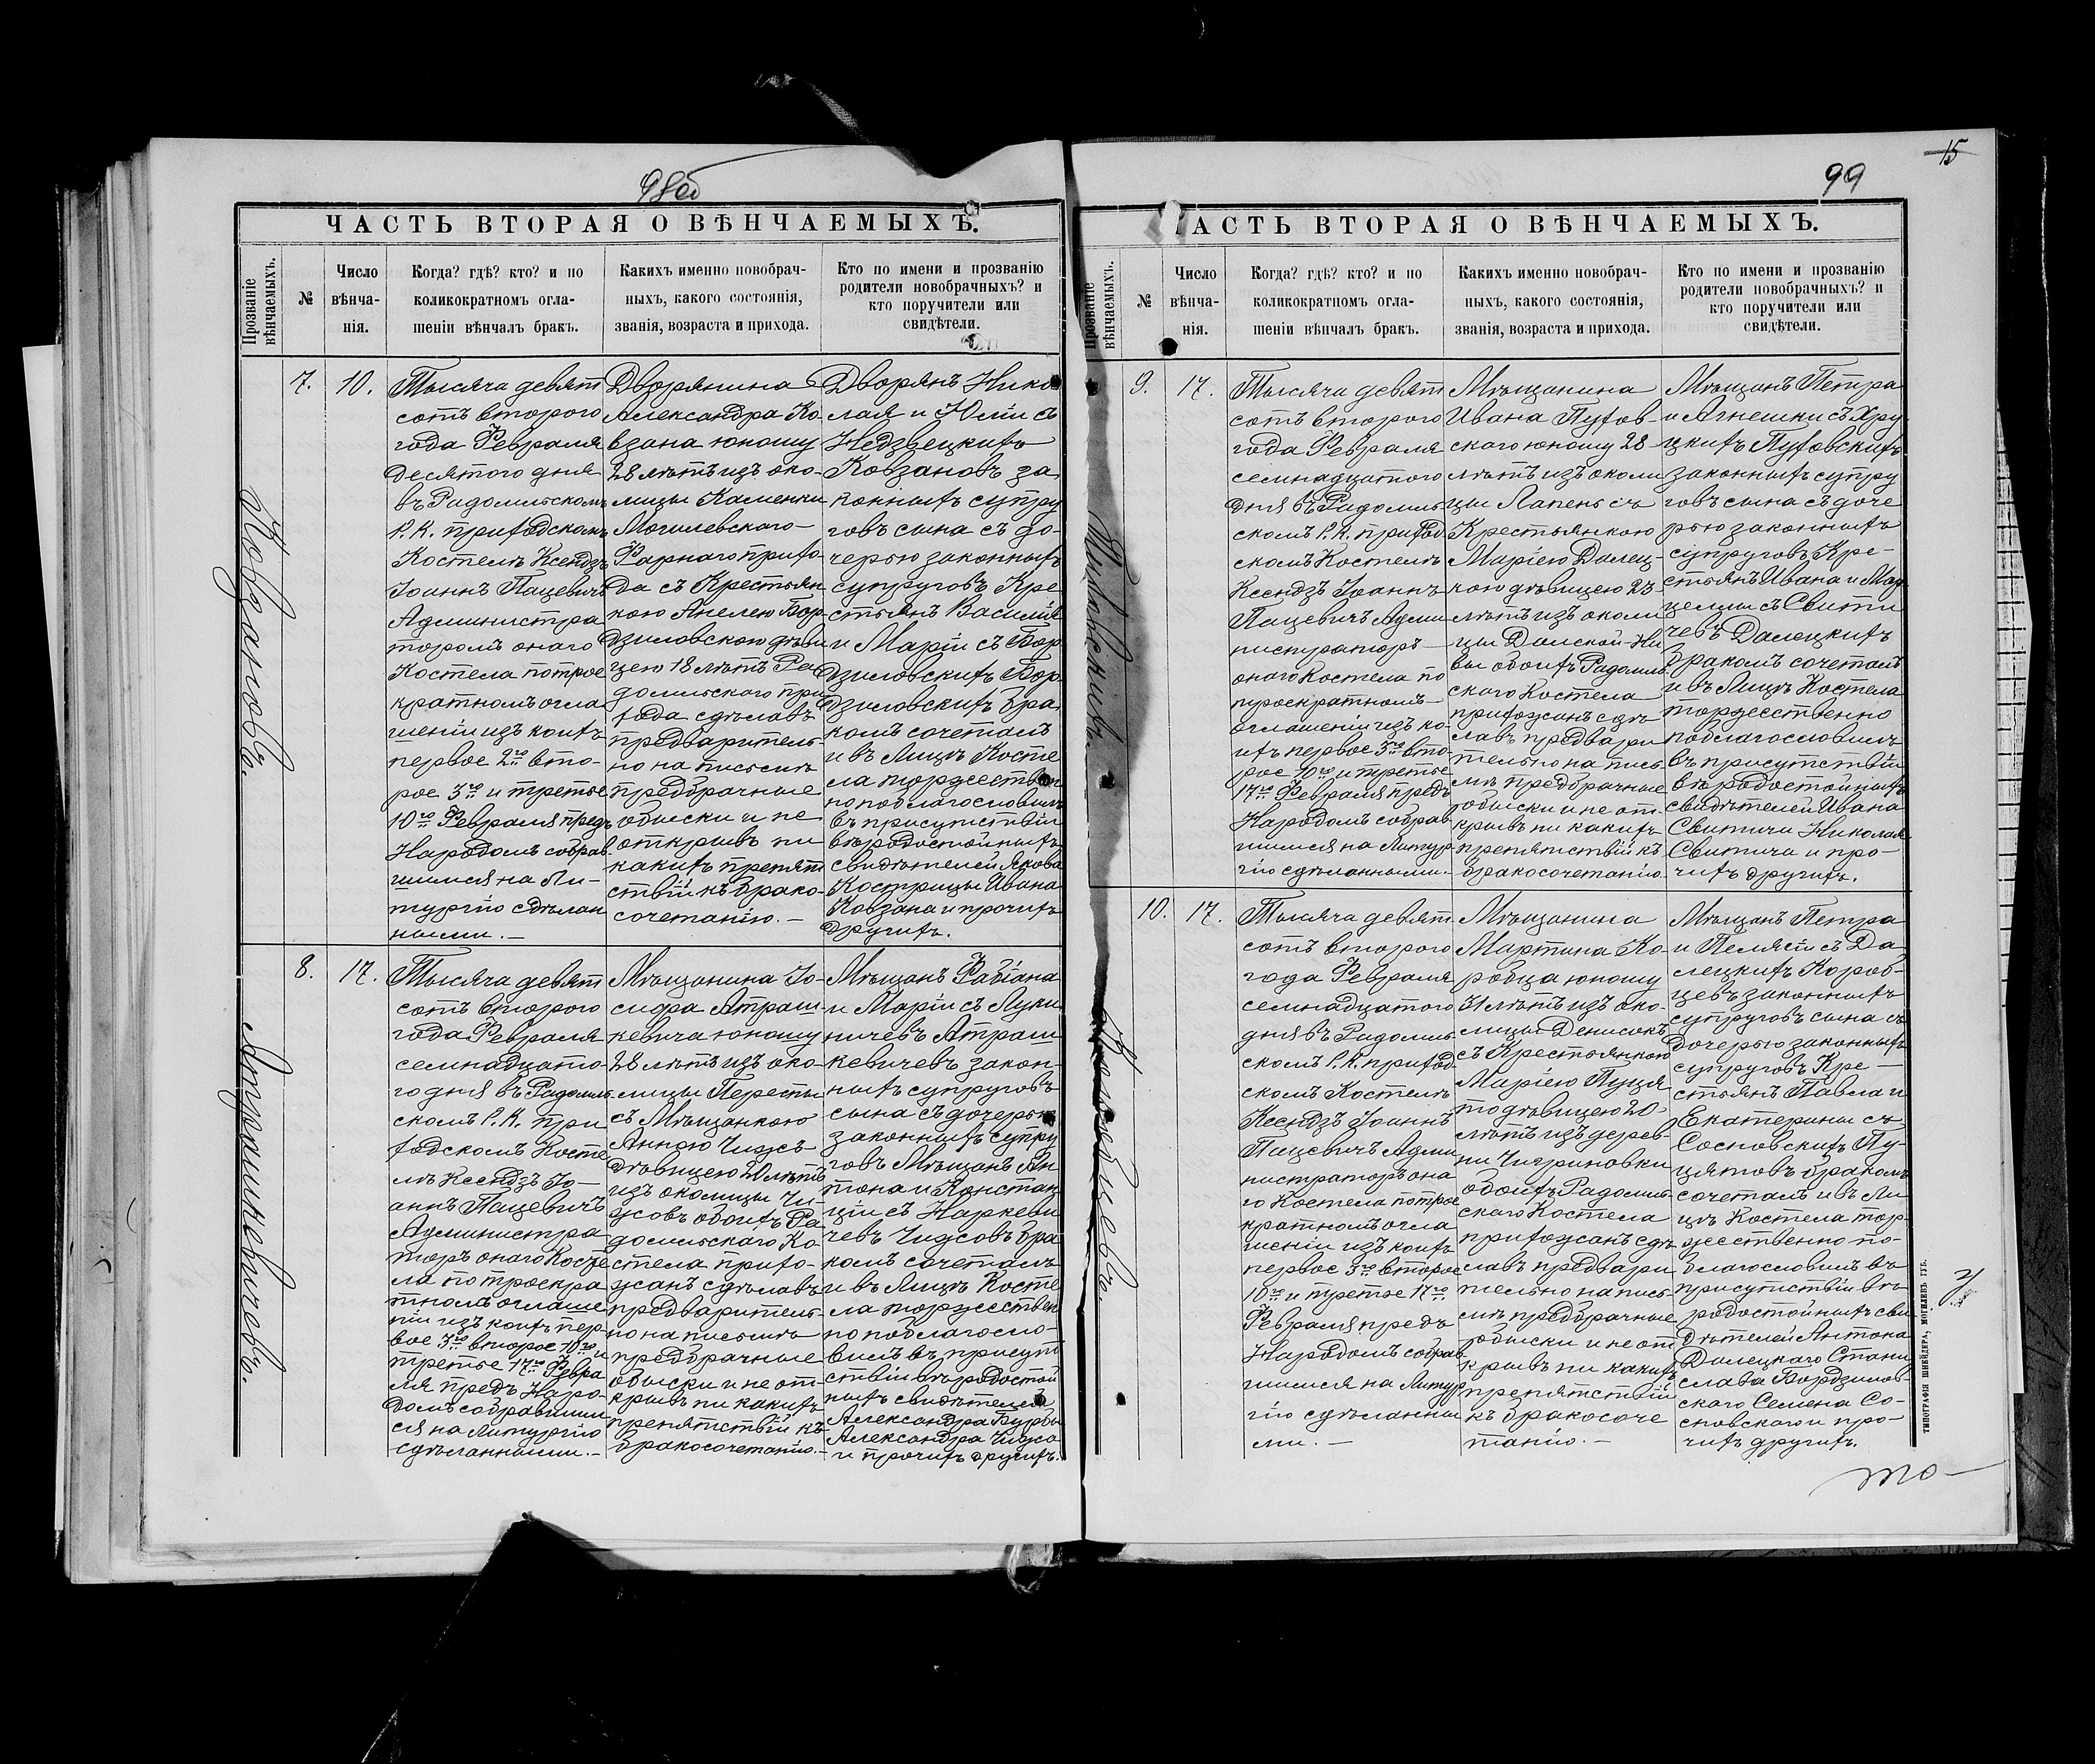 98об
ЧАСТЬ ВТОРАЯ О ВѢНЧАЕМЫХЪ.
Прозваніе вѣнчаемыхъ.
№
Число
вѣнча-
нія.
Когда? гдѣ? кто? и по
коликократномъ огла-
шеніи вѣнчалъ бракъ.
Какихъ именно новобрач-
ныхъ, какого состоянія,
званія, возраста и прихода.
Кто по имени и прозванію
родители новобрачныхъ? и
кто поручители или
свидѣтели.
Ковзановъ.
7.
10.
Тысяча девят
сотъ второго
года Февраля
десятого дня
въ Радомльскомъ
Р. К. приходскомъ
Костелѣ Ксендзъ
Іоаннъ Пацевичъ
Администра
торомъ онаго
Костела по трое
кратномъ огла
шеніи изъ коихъ
первое 2го вто-
рое 3го и третье
10го Февраля предъ
Народомъ собрав
шимся на Ли-
тургію сдѣлан
ными.-
Дворянина
Александра Ко
взана юношу
28 лѣтъ изъ око-
лицы Каменки
Могилевскаго
Фарнаго прихо-
да съ Крестьян
кою Анелею Бор
дзиловскою дѣви
цею 18 лѣтъ Ра
домльского при
хода сдѣлавъ
предваритель-
но на письмѣ
предбрачные
обыски и не
открывъ ни
какихъ препят
ствій къ брако-
сочетанію.-
Дворянъ Нико
лая и Юліи съ
Недзвецкихъ
Ковзановъ за
конныхъ супру
говъ сына съ до-
черью законныхъ
супруговъ Кре
стьянъ Василія
и Маріи съ Бор
дзиловскихъ Бор
дзиловскихъ бра
комъ сочеталъ
и въ Лицѣ Косте
ла торжествен
но поблагословилъ
въ присутствіи
вѣродостойныхъ
свидѣтелей Якова
Кострицы Ивана
Ковзана и прочихъ
другихъ.
Атрашкевичевъ.
8.
17.
Тысяча девят
сотъ второго
года Февраля
семнадцато-
го дня въ Радомль-
скомъ Р. К. при
ходскомъ Косте
лѣ Ксендзъ Іо-
аннъ Пацевичъ
Администра
торъ онаго Косте
ла по троекра
тномъ оглаше
ніи изъ коихъ пер
вое 3го второе 10го и
третье 17го Февра
ля предъ Наро-
домъ собравшим
ся на Литургію
сдѣланными.-
Мѣщанина Іо-
сифа Атраш-
кевича юношу
28 лѣтъ изъ око-
лицы Пересты
съ Мѣщанкою
Анною Чижъ
дѣвицею 20 лѣтъ
изъ околицы Чи-
жовъ обоихъ Ра
домльскаго Ко
стела прихо-
жанъ сдѣлавъ
предваритель-
но на письмѣ
предбрачные
обыски и не от-
крывъ ни какихъ
препятствій къ
бракосочетанію.-
Мѣщанъ Фабіана
и Маріи съ Луки
ничевъ Атраш
кевичевъ закон-
ныхъ супруговъ
сына съ дочерью
законныхъ супру
говъ Мѣщанъ Ан
тона и Констан
ціи съ Наркеви
чевъ Чижовъ бра
комъ сочеталъ
и въ Лицѣ Косте
ла торжествен
но поблагосло-
вилъ въ присут
ствіи вѣродостой
ныхъ свидѣтелей
Александра Бурбы
Александра Чижа
и прочихъ другихъ.
15
99
ЧАСТЬ ВТОРАЯ О ВѢНЧАЕМЫХЪ.
Прозваніе вѣнчаемыхъ.
№
Число
вѣнча-
нія.
Когда? гдѣ? кто? и по
коликократномъ огла-
шеніи вѣнчалъ бракъ.
Какихъ именно новобрач-
ныхъ, какого состоянія,
званія, возраста и прихода.
Кто по имени и прозванію
родители новобрачныхъ? и
кто поручители или
свидѣтели.
9.
17.
Тысяча девят
сотъ второго
года Февраля
семнадцатого
дня въ Радомль-
скомъ Р. К. приход
скомъ Костелѣ
Ксендзъ Іоаннъ
Пацевичъ Адми
нистраторъ
онаго Костела по
троекратномъ
оглашеніи изъ ко-
ихъ первое 3го вто-
рое 10го и третье
17го Февраля предъ
Народомъ собрав
шимся на Литур
гію сдѣланными.
Мѣщанина
Ивана Пухов-
скаго юношу 28
лѣтъ изъ околи
цы Лапень съ
Крестьянкою
Маріею Далец-
кою дѣвицею 23
лѣтъ изъ околи
цы Дамской-Ни
вы обоихъ Радомль
скаго Костела
прихожанъ сдѣ
лавъ предвари
тельно на пись
мѣ предбрачные
обыски и не от-
крывъ ни какихъ
препятствій къ
бракосочетанію.
Мѣщанъ Петра
и Агнешки съ Хру
цкихъ Пуховскихъ
законныхъ супру
говъ сына съ доче
рью законныхъ
супруговъ Кре-
стьянъ Ивана и Мар
целии съ Свити
чевъ Далецкихъ
бракомъ сочеталъ
и въ Лицѣ Костела
торжественно
поблагословилъ
въ присутствіи
вѣродостойныхъ
свидѣтелей Ивана
Свитича Николая
Свитича и про-
чихъ другихъ.
10.
17.
Тысяча девят
сотъ второго
года Февраля
семнадцатого
дня въ Радомль
скомъ Р. К. приход
скомъ Костелѣ
Ксендзъ Іоаннъ
Пацевичъ Адми
нистраторъ она
го Костела по трое
кратномъ огла
шеніи изъ коихъ
первое 3го второе
10го и третье 17го
Февраля предъ
Народомъ собрав
шимся на Литур
гію сдѣланны
ми.-
Мѣщанина
Мартина Ко-
робца юношу
31 лѣтъ изъ око-
лицы Денисокъ
съ Крестьянкою
Маріею Пуця
то дѣвицею 20
лѣтъ изъ дерев-
ни Чигриновки
обоихъ Радомль-
скаго Костела
прихожанъ сдѣ
лавъ предвари
тельно на пись-
мѣ предбрачные
обыски и не от
крывъ ни какихъ
препятствій
къ бракосоче
танію.-
Мѣщанъ Петра
и Пеляги съ Да
лецкихъ Короб-
цевъ законныхъ
супруговъ сына съ
дочерью законныхъ
супруговъ Кре-
стьянъ Павла и
Екатерины съ
Сосновскихъ Пу-
цятовъ бракомъ
сочеталъ и въ Ли
цѣ Костела тор-
жественно по-
благословилъ въ
присутствіи вѣ-
родостойныхъ сви
дѣтелей Антона
Далецкаго Стани
слава Бордзилов-
скаго Семена Со-
сновскаго и про-
чихъ другихъ.
ТИПОГРАФІЯ ШНЕЙДЕРА, МОГИЛЕВЪ ГУБ.
то-